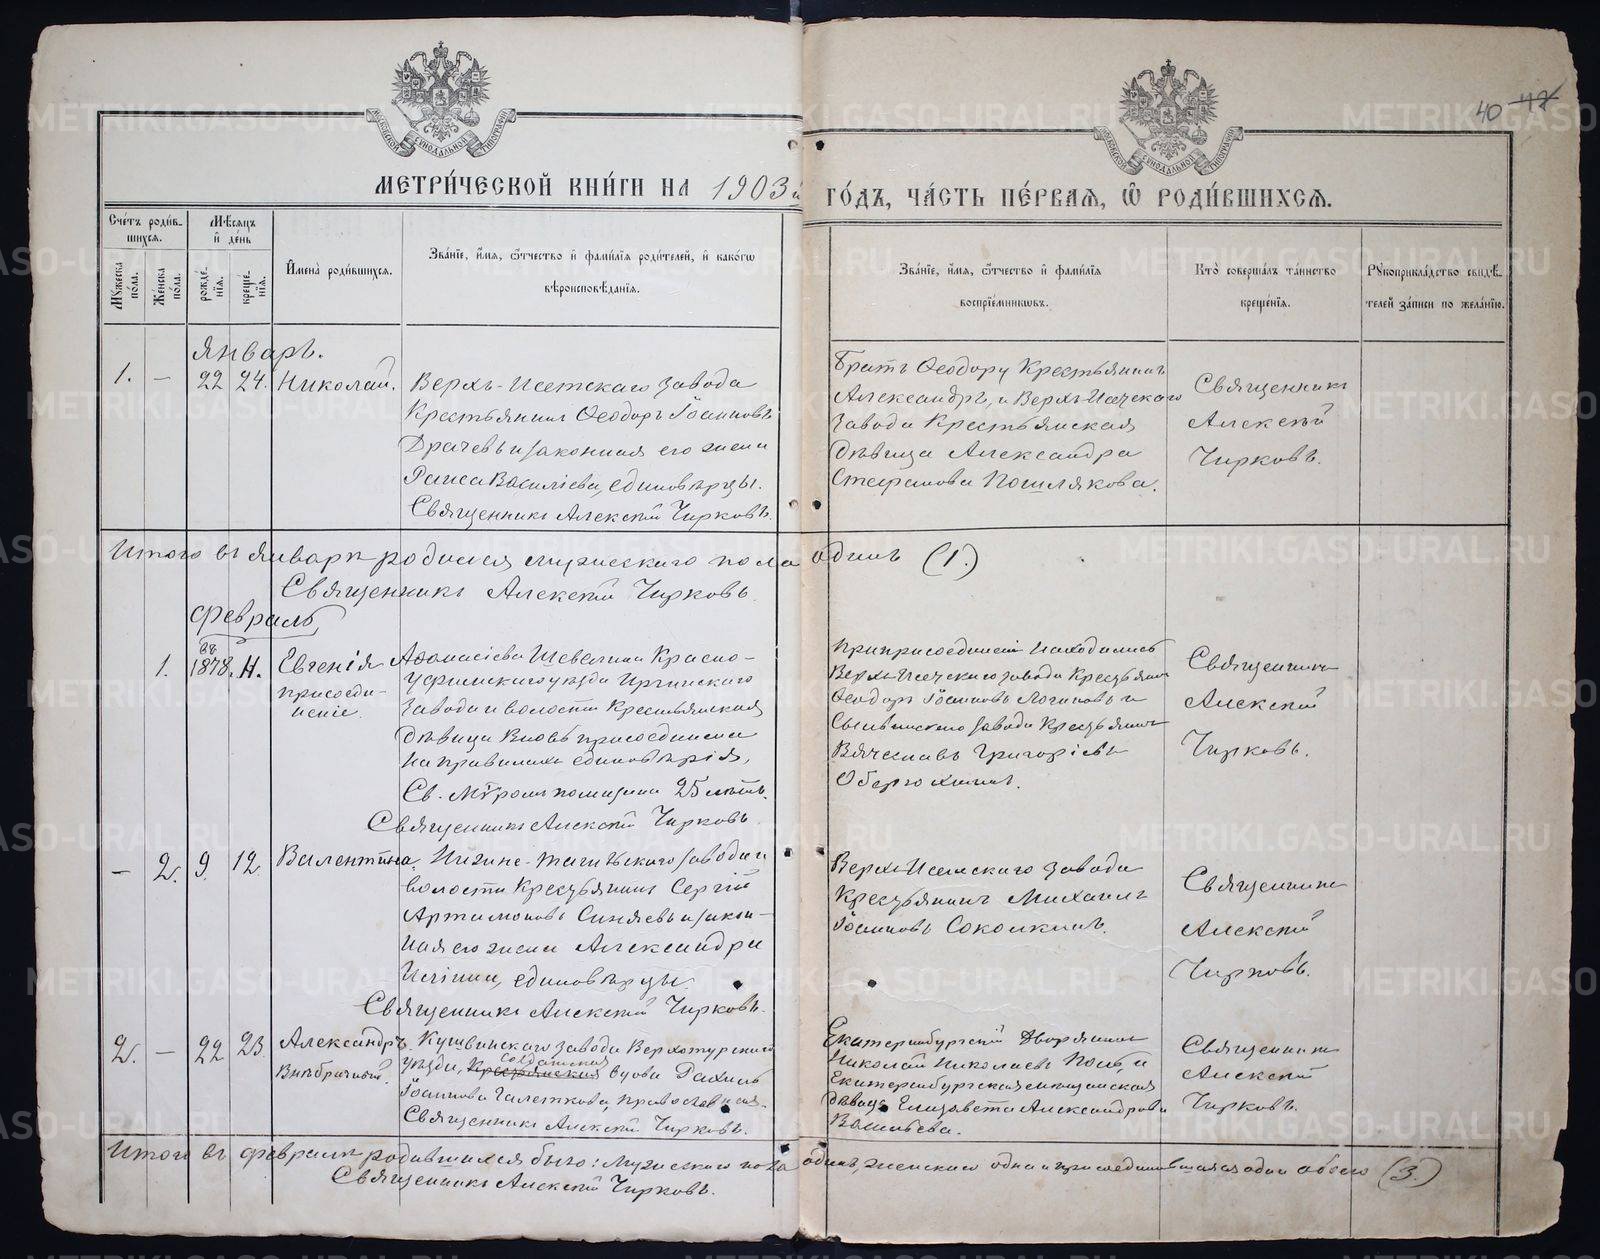 40 42
МЕТРИ́ЧЕСКОЙ КНИ́ГИ НА 1903й ГО́ДЪ, ЧА́СТЬ ПЕ́РВАЯ, Ѡ РОДИ́ВШИХСЯ.
Сче́тъ роди́в-
шихся.
Мѣ́сяцъ
и де́нь
Му́жеска по́ла.
Же́нска по́ла.
рожде́-нія.
креще́-нія.
Имена̀ роди́вшихся.
Зва́ніе, и́мя, ѻ́тчество и фами́лія роди́телей, и како́гѡ
вѣроисповѣ́данія.
Зва́ніе, и́мя, ѻ́тчество и фами́лія
воспріе́мникѡвъ.
Кто̀ соверша́лъ та́инство
креще́нія.
Рукоприкла́дство свидѣ́-
телей за́писи по жела́нію.
Январь.
1. — 22 24. Николай.
Верхъ-Исетскаго завода
Крестьянинъ Ѳеодоръ Іоанновъ
Драчевъ и законная его жена
Раиса Василіева, единовѣрцы.
Священникъ Алексѣй Чирковъ.
Братъ Ѳеодору Крестьянинъ
Александръ, и Верхъ-Исетскаго
завода Крестьянская
дѣвица Александра
Стефанова Пошлякова.
Священникъ
Алексѣй
Чирковъ.
Итого въ январѣ родился мужескаго пола одинъ (1.)
Священникъ Алексѣй Чирковъ.
Февраль
1. въ 1878. Н. Евгенія
присоеди-
неніе.
Аѳонасіева Шевалина Красно-
уфимскаго уѣзда Иргинскаго
завода и волости Крестьянская
дѣвица вновь присоединена
на правилахъ единовѣрія,
Св. Мѵромъ помазана 25 лѣтъ.
Священникъ Алексѣй Чирковъ.
При присоединеніи находились
Верхъ-Исетскаго завода Крестьянинъ
Ѳеодоръ Іоанновъ Логиновъ и
Сылвинскаго завода Крестьянинъ
Вячеславъ Григоріевъ
Оберюхтинъ.
Священникъ
Алексѣй
Чирковъ.
— 2. 9. 12. Валентина.
Нижне-Тагильскаго завода и
волости Крестьянинъ Сергій
Артамоновъ Синяевъ и закон-
ная его жена Александра
единовѣрцы.
Священникъ Алексѣй Чирковъ.
Верхъ-Исетскаго завода
Крестьянинъ Михаилъ
Іоанновъ Соколкинъ.
Священникъ
Алексѣй
Чирковъ.
2. — 22 23. Александръ
Внѣбрачный.
Кушвинскаго завода Верхотурскаго
солдатская
уѣзда, Крестьянская вдова Рахиль
Іоаннова Галеткова, православная.
Священникъ Алексѣй Чирковъ.
Екатеринбургскій дворянинъ
Николай Николаевъ и
Екатеринбургская мещанская
дѣвица Елизавета Александрова
Васильева.
Священникъ
Алексѣй
Чирковъ.
Итого въ февралѣ родившихся было: мужескаго пола одинъ, женскаго одна и присоединившаяся одна обоего (3.)
Священникъ Алексѣй Чирковъ.
METRIKI.GASO-URAL.RU